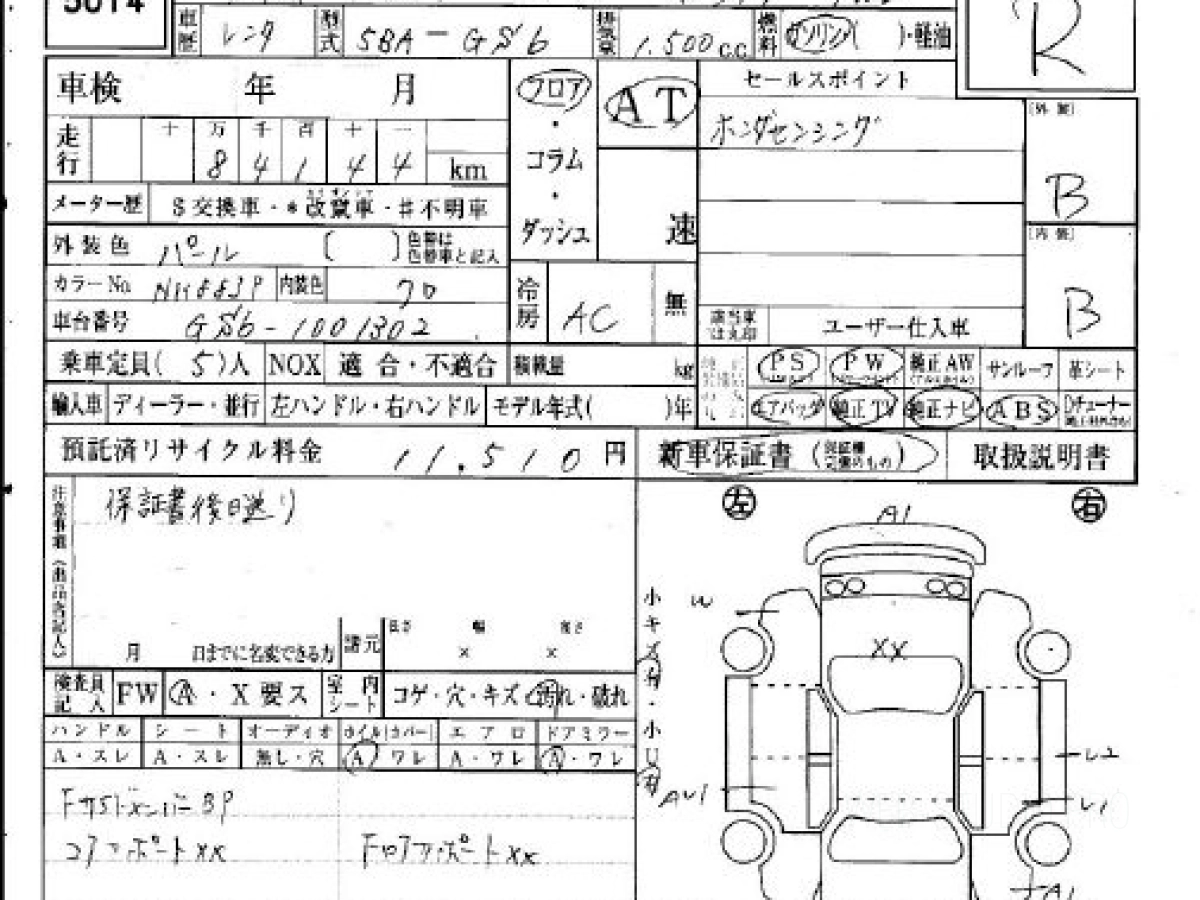 5014
車歴 レンタ 型式 5BA-GS6 排気量 1.500 c.c 燃料 ガソリン( )・軽油
R
車検 年 月 フロア AT セールスポイント
・ ホンダセンシング 〔外装〕
走行 十 万 千 百 十 一 コラム
8 4 1 4 4 km B
メーター歴 $交換車・*改竄車・#不明車 ・
ダッシュ 速 〔内装〕
外装色 パール 〔 〕色替は色替車と記入
カラーNo. NH883P 内装色 冷房 AC 無 B
車台番号 GS6-1001302 該当車は丸印 ユーザー仕入車
乗車定員( 5 )人 NOX 適合・不適合 積載量 kg PS PW 純正AW サンルーフ 革シート
輸入車 ディーラー・並行 左ハンドル・右ハンドル モデル年式( )年 エアバッグ 純正TV 純正ナビ ABS
預託済リサイクル料金 11.510 円 新車保証書 取扱説明書
注意事項(出品店記入) 保証書後日送り
左 右
A1
小キズ有・小U有 W
XX
月 日までに名変できる方 諸元 長さ 幅 高さ
× ×
検査員記入 FW A・X要ス 室内シート コゲ・穴・キズ・汚れ・破れ
ハンドル シート オーディオ ホイル(カバー) エアロ ドアミラー
A・スレ A・スレ 無し・穴 A ワレ A・ワレ A・ワレ
U2
AU1 U1
コアサポートXX FロアサポートXX
A1